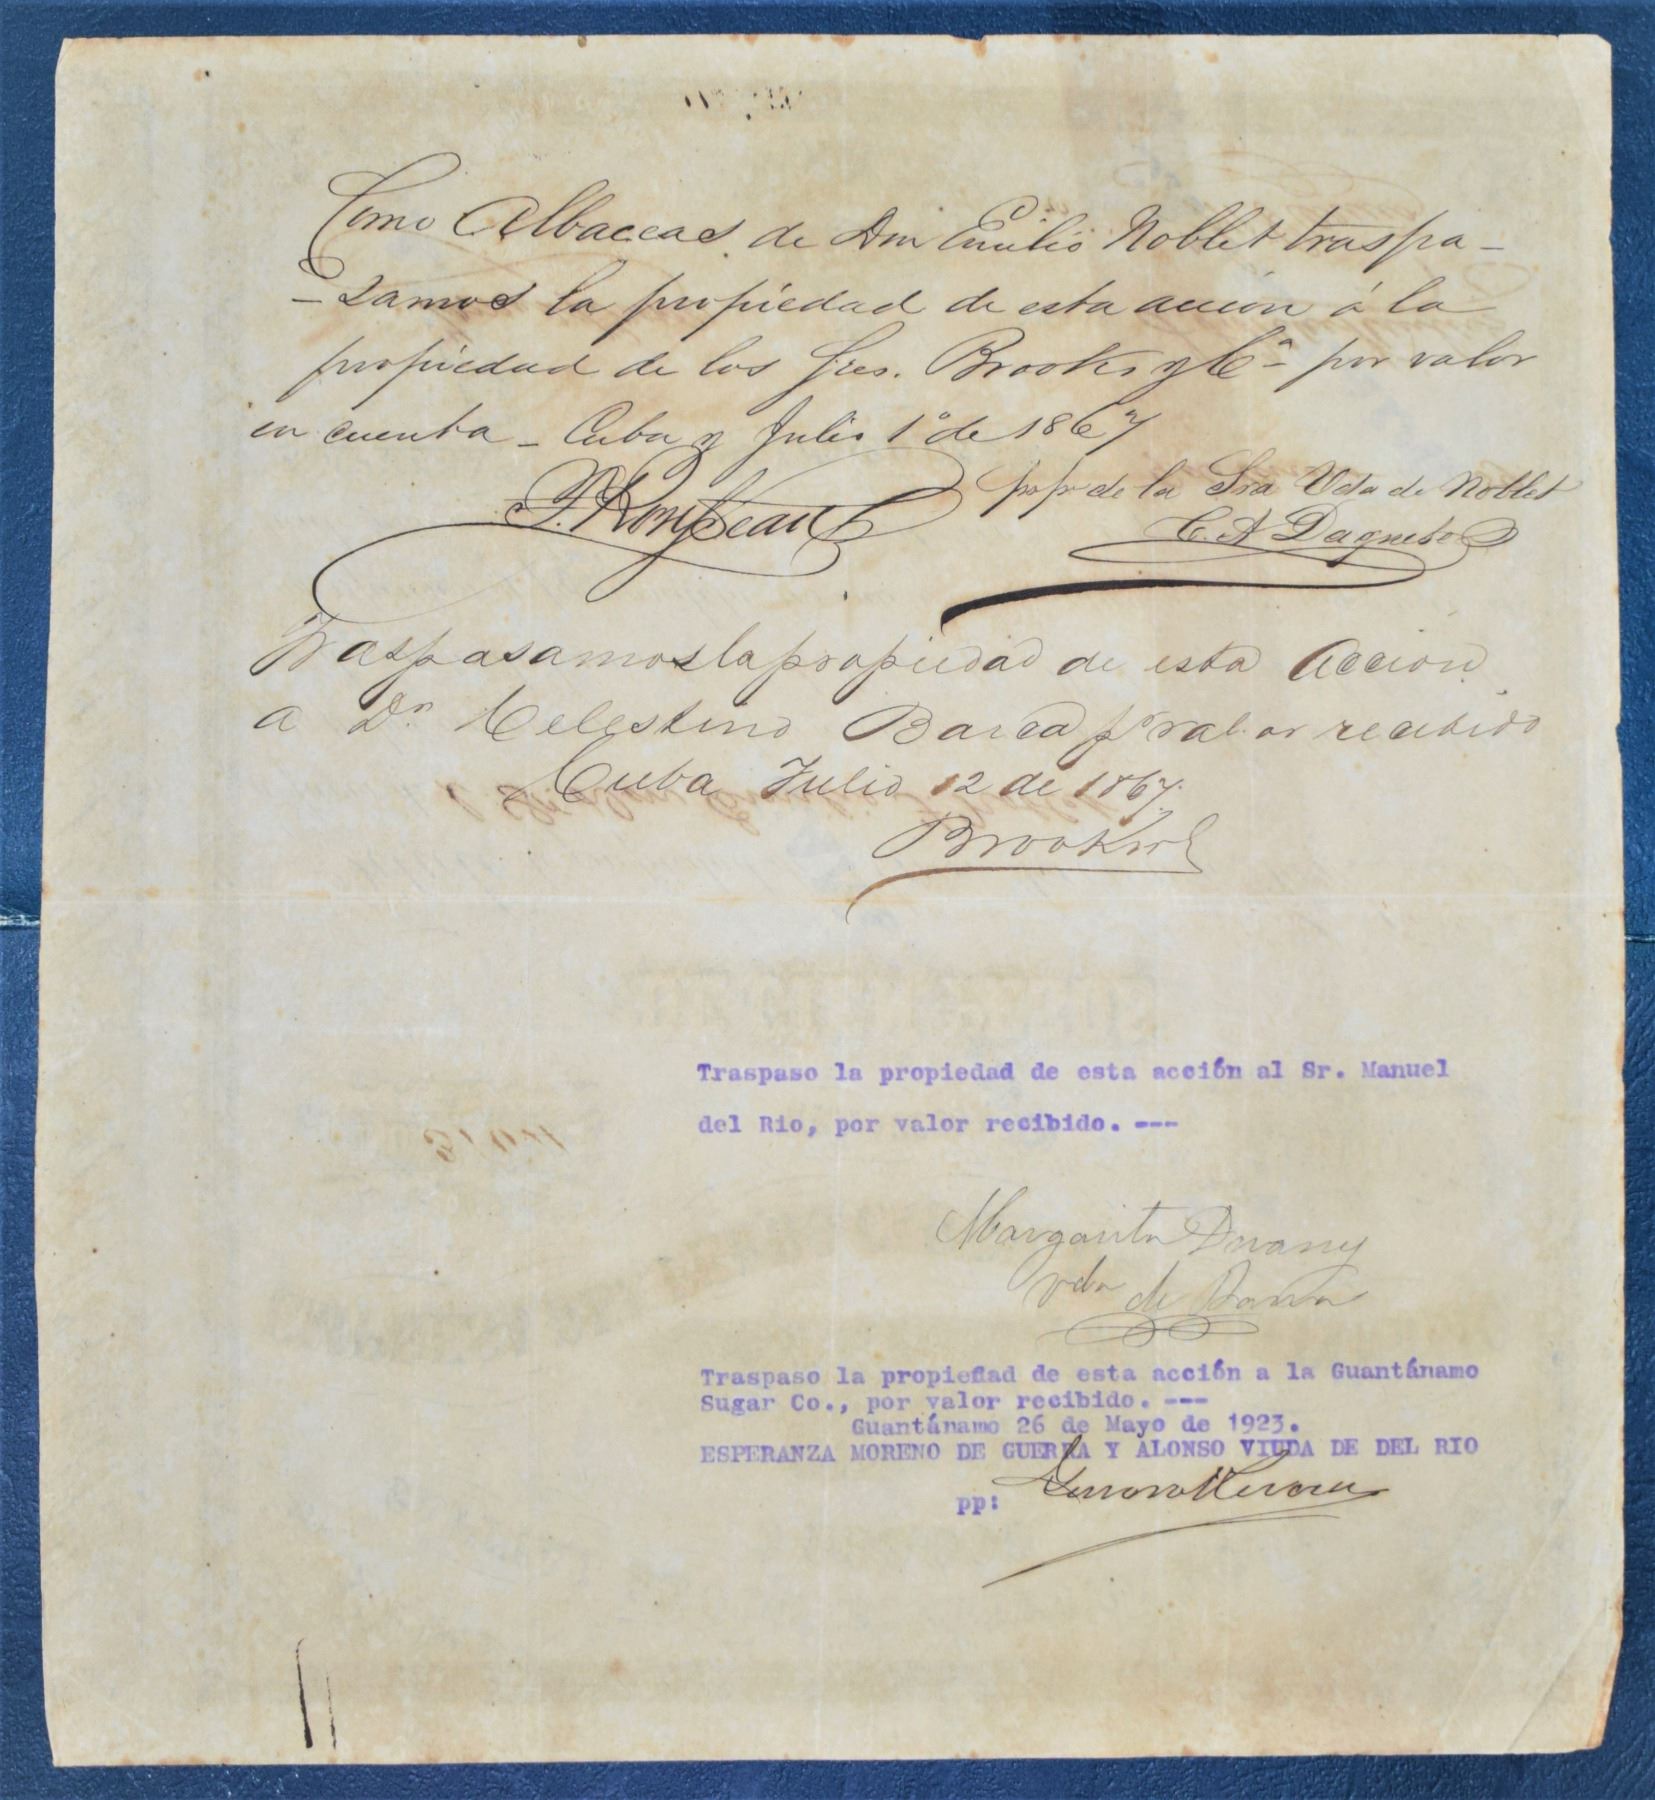 Como Albaceas de Don Emilio Noblet traspa-
-samos la propiedad de esta acción á la
propiedad de los Sres. Brooks y Cª por valor
en cuenta - Cuba y Julio 1º de 1867
pr pr de la Sra Vda de Noblet
Traspasamos la propiedad de esta Accion
a Dn Celestino Barca pr valor recibido
Cuba Julio 12 de 1867.
Traspaso la propiedad de esta acción al Sr. Manuel
del Rio, por valor recibido. ---
Margarita Duany
vda de
Traspaso la propiedad de esta acción a la Guantánamo
Sugar Co., por valor recibido. ---
Guantánamo 26 de Mayo de 1923.
ESPERANZA MORENO DE GUERRA Y ALONSO VIUDA DE DEL RIO
pp: